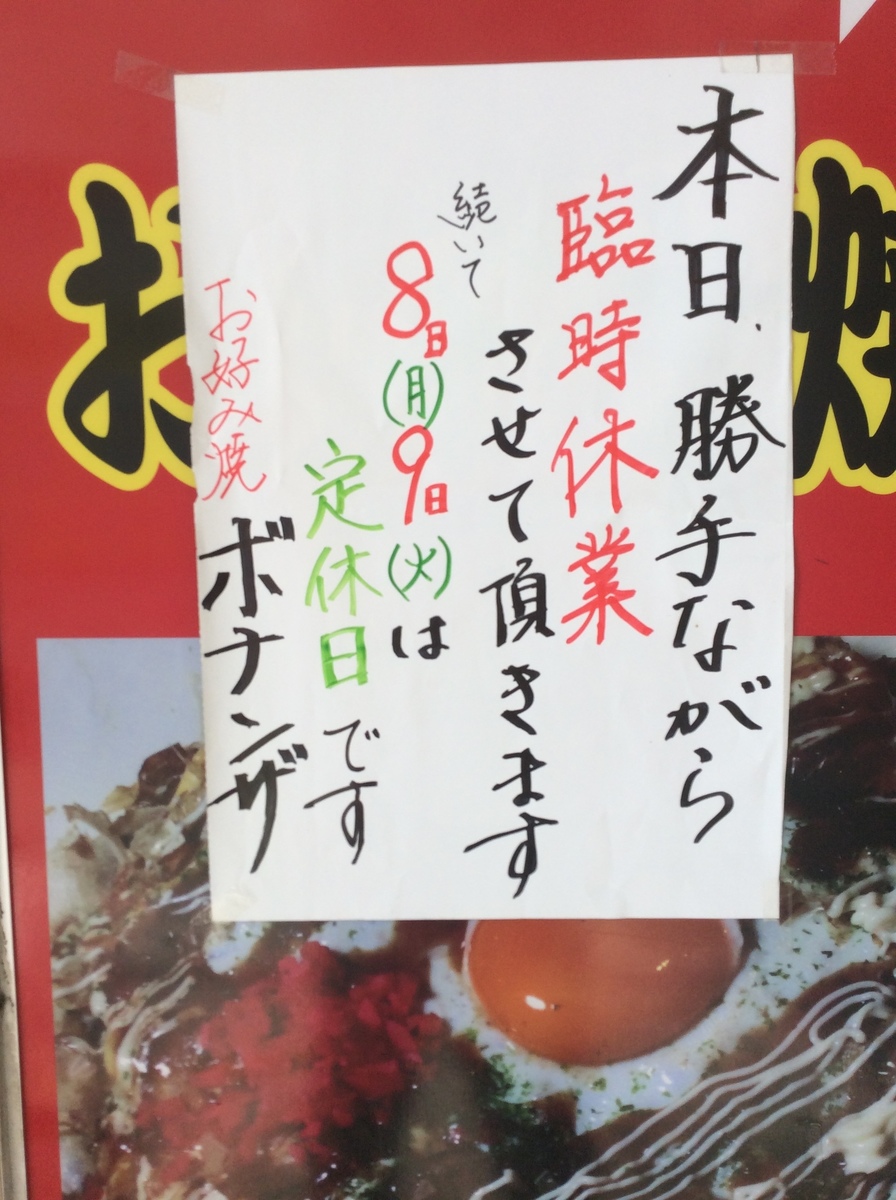 本日、勝手ながら
臨時休業
させて頂きます
続いて
8日(月)9日(火)は
定休日です
お好み焼 ボナンザ
お
焼